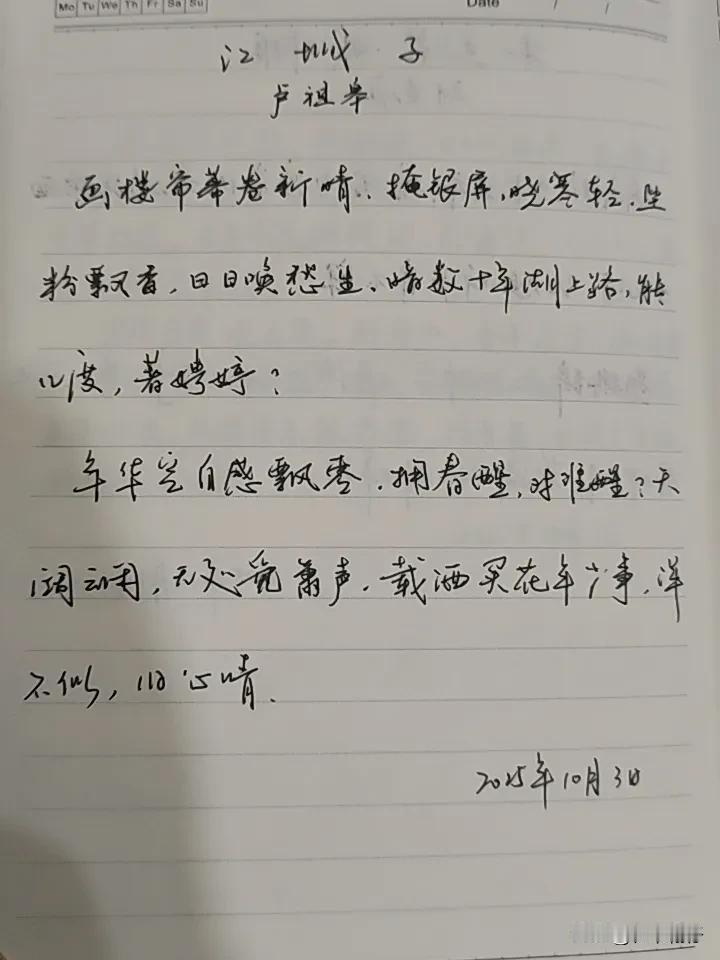 Mo Tu We Th Fr Sa Su
Date
江城子
卢祖皋
画楼帘幕卷新晴.掩银屏,晓寒轻.坠
粉飘香,日日唤愁生.暗数十年湖上路,能
几度,著娉婷?
年华空自感飘零.拥春酲,对谁醒?天
阔云闲,无处觅萧声.载酒买花年少事,浑
不似,旧心晴.
2025年10月3日